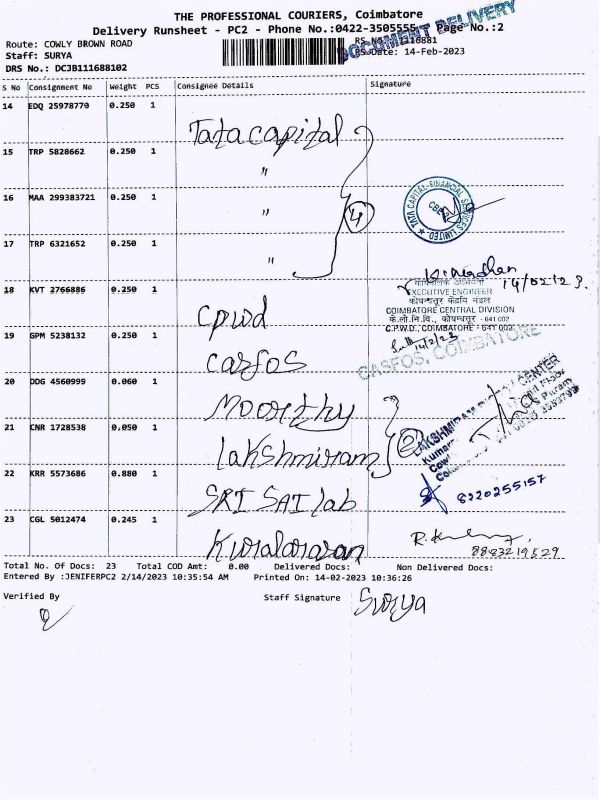 THE PROFESSIONAL COURIERS, Coimbatore
Delivery Runsheet - PC2 - Phone No.:0422-3505555 Page No.:2
DOCUMENT DELIVERY
Route: COWLY BROWN ROAD
Staff: SURYA
RS Date: 14-Feb-2023
DRS No.: DCJB111688102
S No Consignment No Weight PCS Consignee Details Signature
14 EDQ 25978770 0.250 1 Tata capital
15 TRP 5828662 0.250 1 "
16 MAA 299383721 0.250 1 " 4
TATA CAPITAL FINANCIAL SERVICES LIMITED
CBE
17 TRP 6321652 0.250 1 "
14/02/23
18 KVT 2766886 0.250 1 CPWD
कार्यपालक अभियंता
EXECUTIVE ENGINEER
कोयम्बत्तूर केंद्रीय मंडल
COIMBATORE CENTRAL DIVISION
के.लो.नि.वि., कोयम्बत्तूर - 641 002
C.P.W.D., COIMBATORE - 641 002
19 GPM 5238132 0.250 1 Casfos
14/2/23
CASFOS, COIMBATORE
20 DDG 4560999 0.060 1 Moorthy
21 CNR 1728538 0.050 1 Lakshmiram 2
22 KRR 5573686 0.880 1 SRI SAI lab
8220255157
23 CGL 5012474 0.245 1 Kuralarasan
8883219529
Total No. Of Docs: 23 Total COD Amt: 0.00 Delivered Docs: Non Delivered Docs:
Entered By :JENIFERPC2 2/14/2023 10:35:54 AM Printed On: 14-02-2023 10:36:26
Verified By Staff Signature Surya